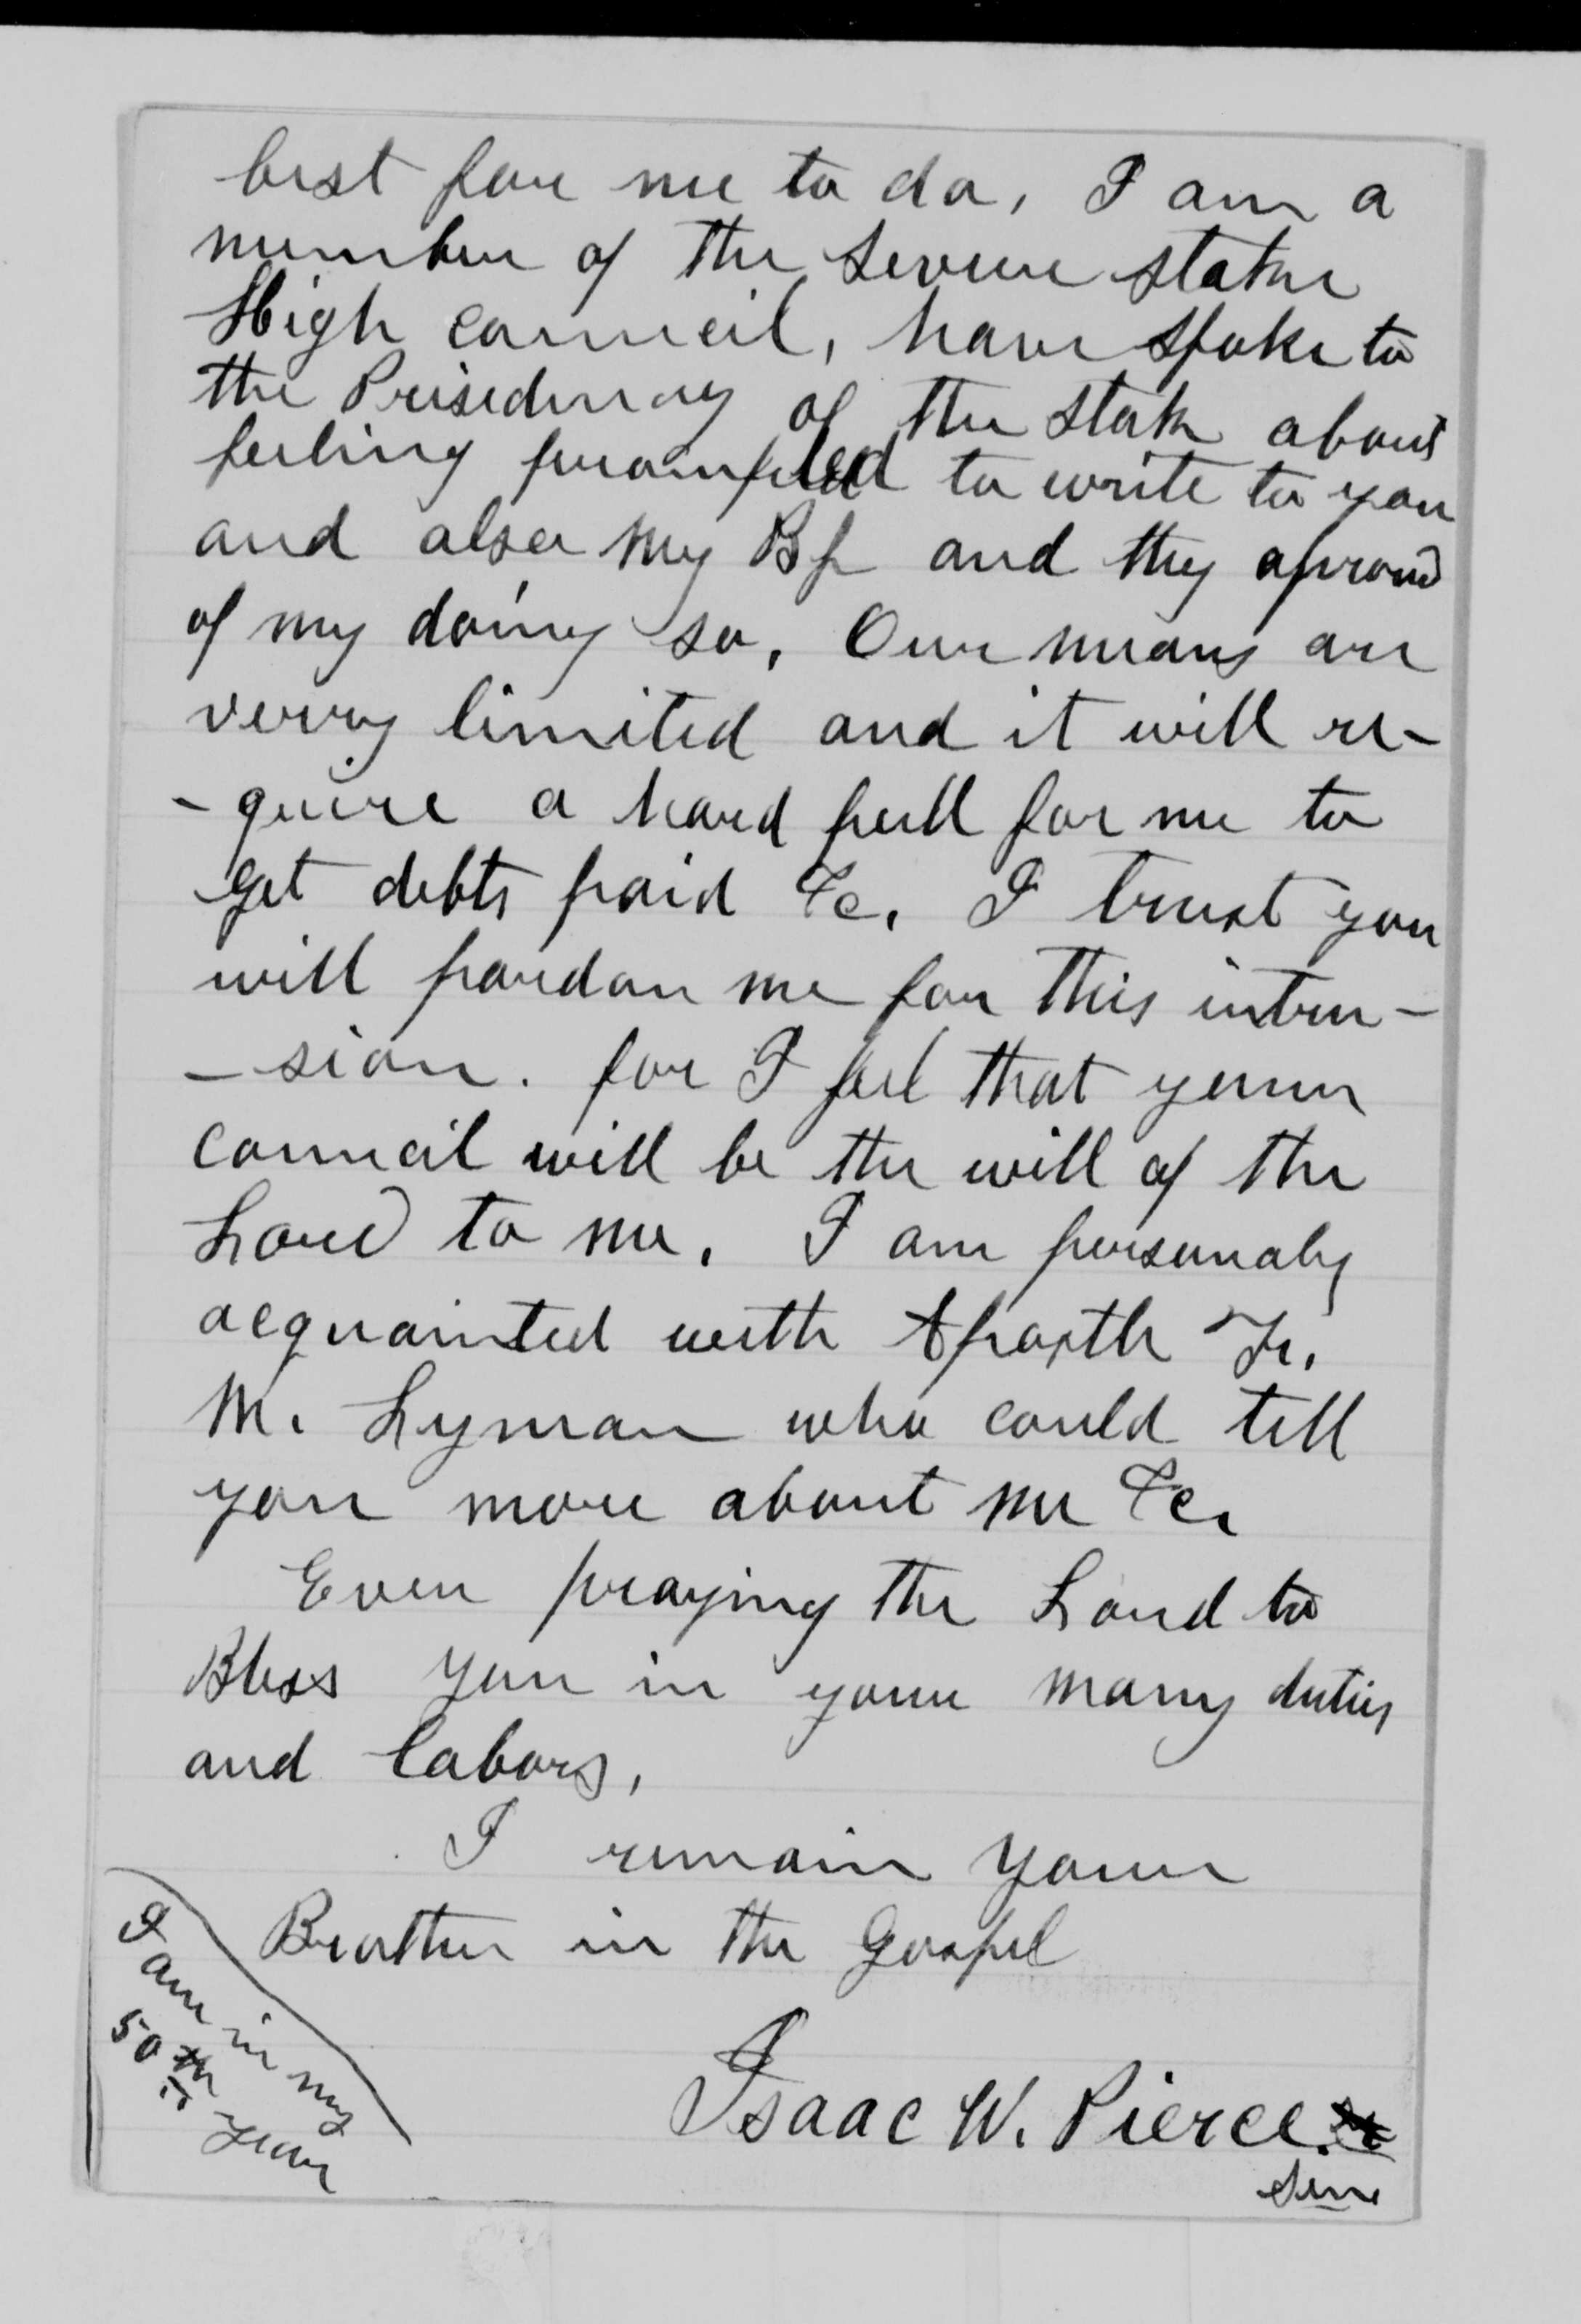 best for me to do, I am a
member of the Sevier stake
High council, have spoke to
the Prisedincy of the stake about
feeling prompted to write to you
and also my Bp and they aproved
of my doing so, Our means are
verry limited and it will re-
-quire a hard pull for me to
get debts paid &c. I trust you
will pardon me for this intru-
-sion. for I feel that your
council will be the will of the
Lord to me. I am personaly
acquainted with Apostle Fr.
M. Lyman who could tell
you more about me &c.
Ever praying the Lord to
Bless you in your many duties
and labors,
I remain your
Brother in the Gospel
Isaac W. Pierce.
Sen.
I am in my
50th year